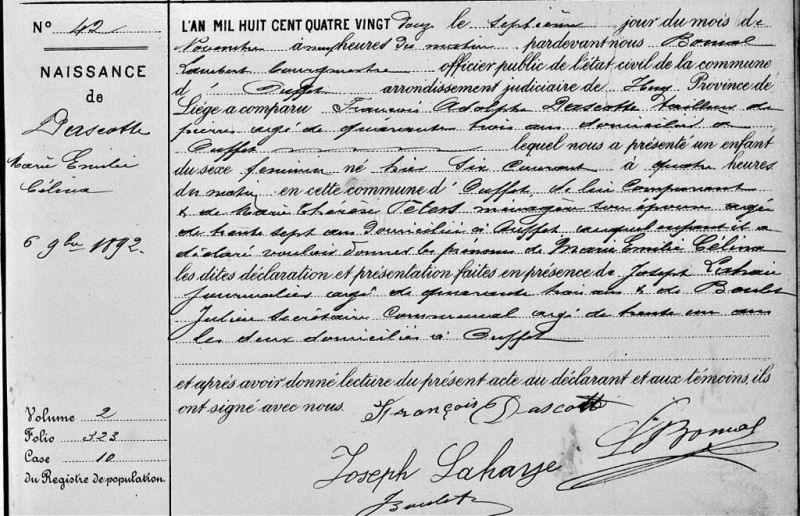 N° 42
NAISSANCE
de
Dascotte
Marie Emilie
Célina
6 9bre 1892.
Volume 2
Folio 323
Case 10
du Registre de population.
L'AN MIL HUIT CENT QUATRE VINGT Douze le septième jour du mois de
Novembre à neuf heures du matin pardevant nous Bomal
Lambert bourgmestre officier public de l'état civil de la commune
d' Ouffet arrondissement judiciaire de Huy Province de
Liège a comparu François Adolphe Dascotte tailleur de
pierres agé de quarante trois ans domicilié à
Ouffet lequel nous a présenté un enfant
du sexe feminin né hier six courant à quatre heures
du matin en cette commune d' Ouffet, de lui Comparant
& de Marie Thérèse Peters ménagère son épouse agée
de trente sept ans domiciliée à Ouffet auquel enfant il a
déclaré vouloir donner les prénoms de Marie Emilie Célina
les dites déclaration et présentation faites en présence de Joseph Lahaye
journalier agé de quarante trois ans & de Boulet
Julien Secrétaire Communal agé de trente un ans
les deux domiciliés à Ouffet
et après avoir donné lecture du présent acte du déclarant et aux témoins, ils
ont signé avec nous. François Dascotte
L Bomal
Joseph Lahaye
Boulet